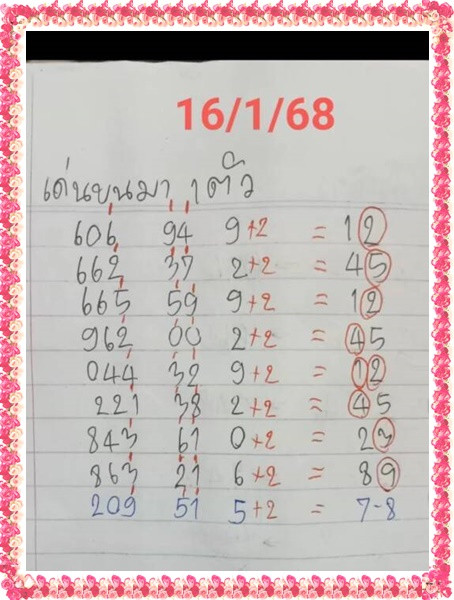 16/1/68
เด่นบนมา 1 ตัว
606 94 9+2 = 12
662 37 2+2 = 45
665 59 9+2 = 12
962 00 2+2 = 45
044 32 9+2 = 12
221 38 2+2 = 45
843 61 0+2 = 23
863 21 6+2 = 89
209 51 5+2 = 7-8